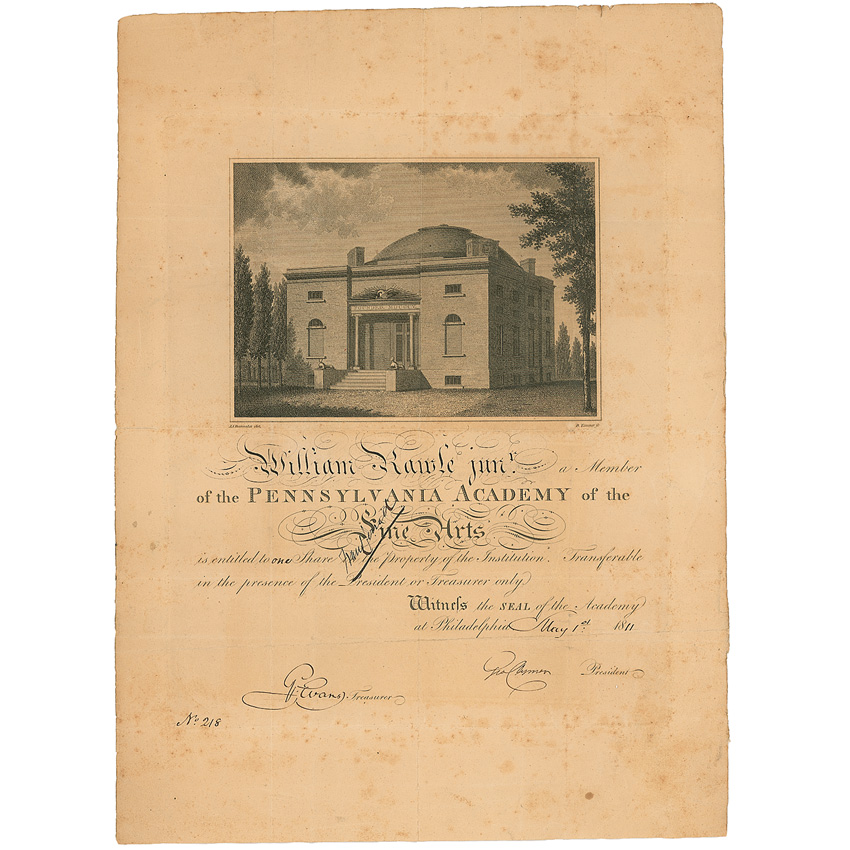 William Rawle junr. a Member
of the PENNSYLVANIA ACADEMY of the
Fine Arts
is entitled to one Share the Property of the Institution. Transferable
in the presence of the President or Treasurer only
Witness the SEAL of the Academy
at Philadelphia May 1st. 1811
Geo Clymer President
G. Evans Treasurer
No. 218